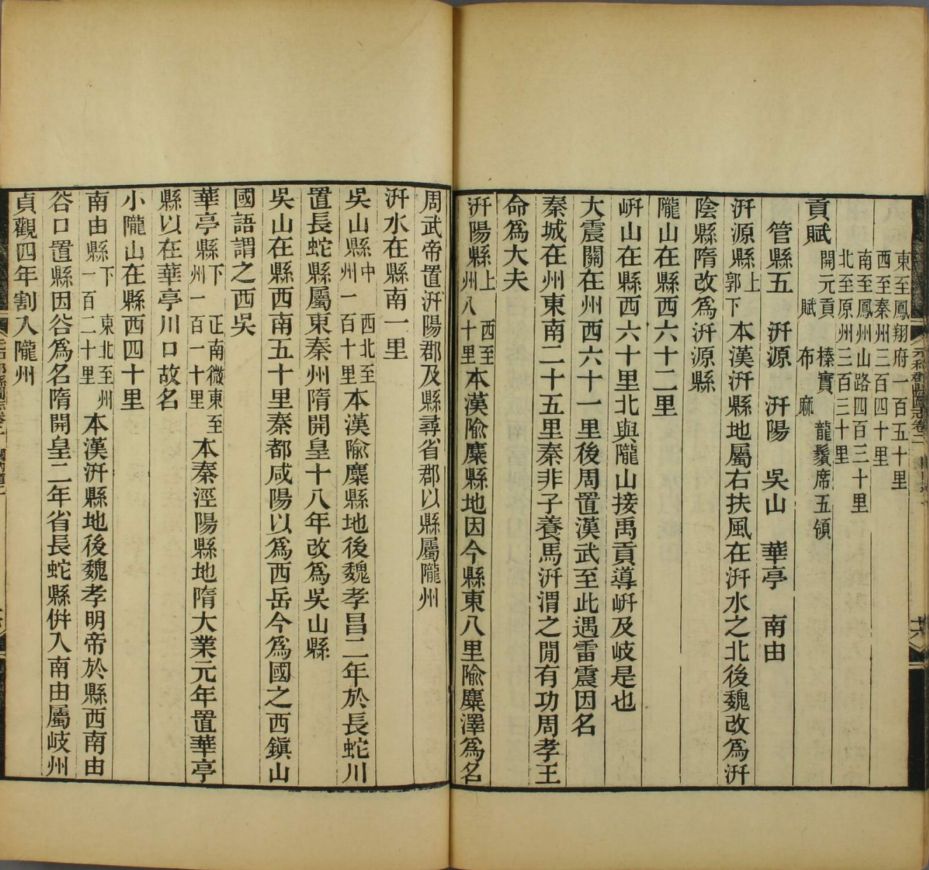 東至鳳翔府一百五十里
西至秦州三百四十里
南至鳳州山路四百三十里
北至原州三百三十里
貢賦
開元貢 榛實 龍鬚席五領
賦 布 麻
管縣五 汧源 汧陽 吳山 華亭 南由
汧源縣上郭下本漢汧縣地屬右扶風在汧水之北後魏改爲汧
陰縣隋改爲汧源縣
隴山在縣西六十二里
岍山在縣西六十里北與隴山接禹貢導岍及岐是也
大震關在州西六十一里後周置漢武至此遇雷震因名
秦城在州東南二十五里秦非子養馬汧渭之閒有功周孝王
命爲大夫
汧陽縣上西至州八十里本漢隃麋縣地因今縣東八里隃麋澤爲名
周武帝置汧陽郡及縣尋省郡以縣屬隴州
汧水在縣南一里
吳山縣中西北至州一百十里本漢隃麋縣地後魏孝昌二年於長蛇川
置長蛇縣屬東秦州隋開皇十八年改爲吳山縣
吳山在縣西南五十里秦都咸陽以爲西岳今爲國之西鎮山
國語謂之西吳
華亭縣下正南微東至州一百一十里本秦涇陽縣地隋大業元年置華亭
縣以在華亭川口故名
小隴山在縣西四十里
南由縣下東北至州一百二十里本漢汧縣地後魏孝明帝於縣西南由
谷口置縣因谷爲名隋開皇二年省長蛇縣併入南由屬岐州
貞觀四年割入隴州